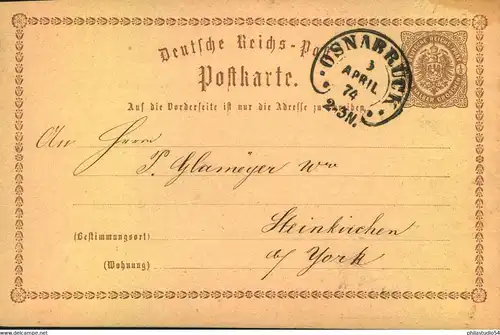 Deutsche Reichs-Post
Postkarte.
OSNABRÜCK
3
APRIL
74
2-3N.
Auf die Vorderseite ist nur die Adresse zu schreiben.
An Herrn
P. Glameyer Wwe
Steinkirchen
(Bestimmungsort)
a/ York
(Wohnung)
philastudio54